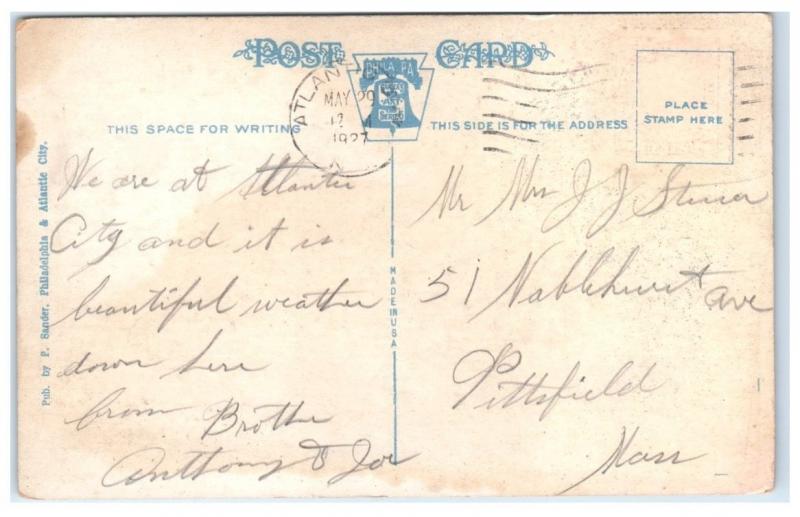 POST CARD
PHILA. PA.
ATLANTIC
MAY 29
12 M
1927
N.J.
PLACE
STAMP HERE
THIS SPACE FOR WRITING
THIS SIDE IS FOR THE ADDRESS
We are at Atlantic
City and it is
beautiful weather
down here
from Brother
Anthony & Joe
MADE IN USA
Pub. by P. Sander, Philadelphia & Atlantic City.
Mr Mrs J J
51 Noblehurst Ave
Pittsfield
Mass